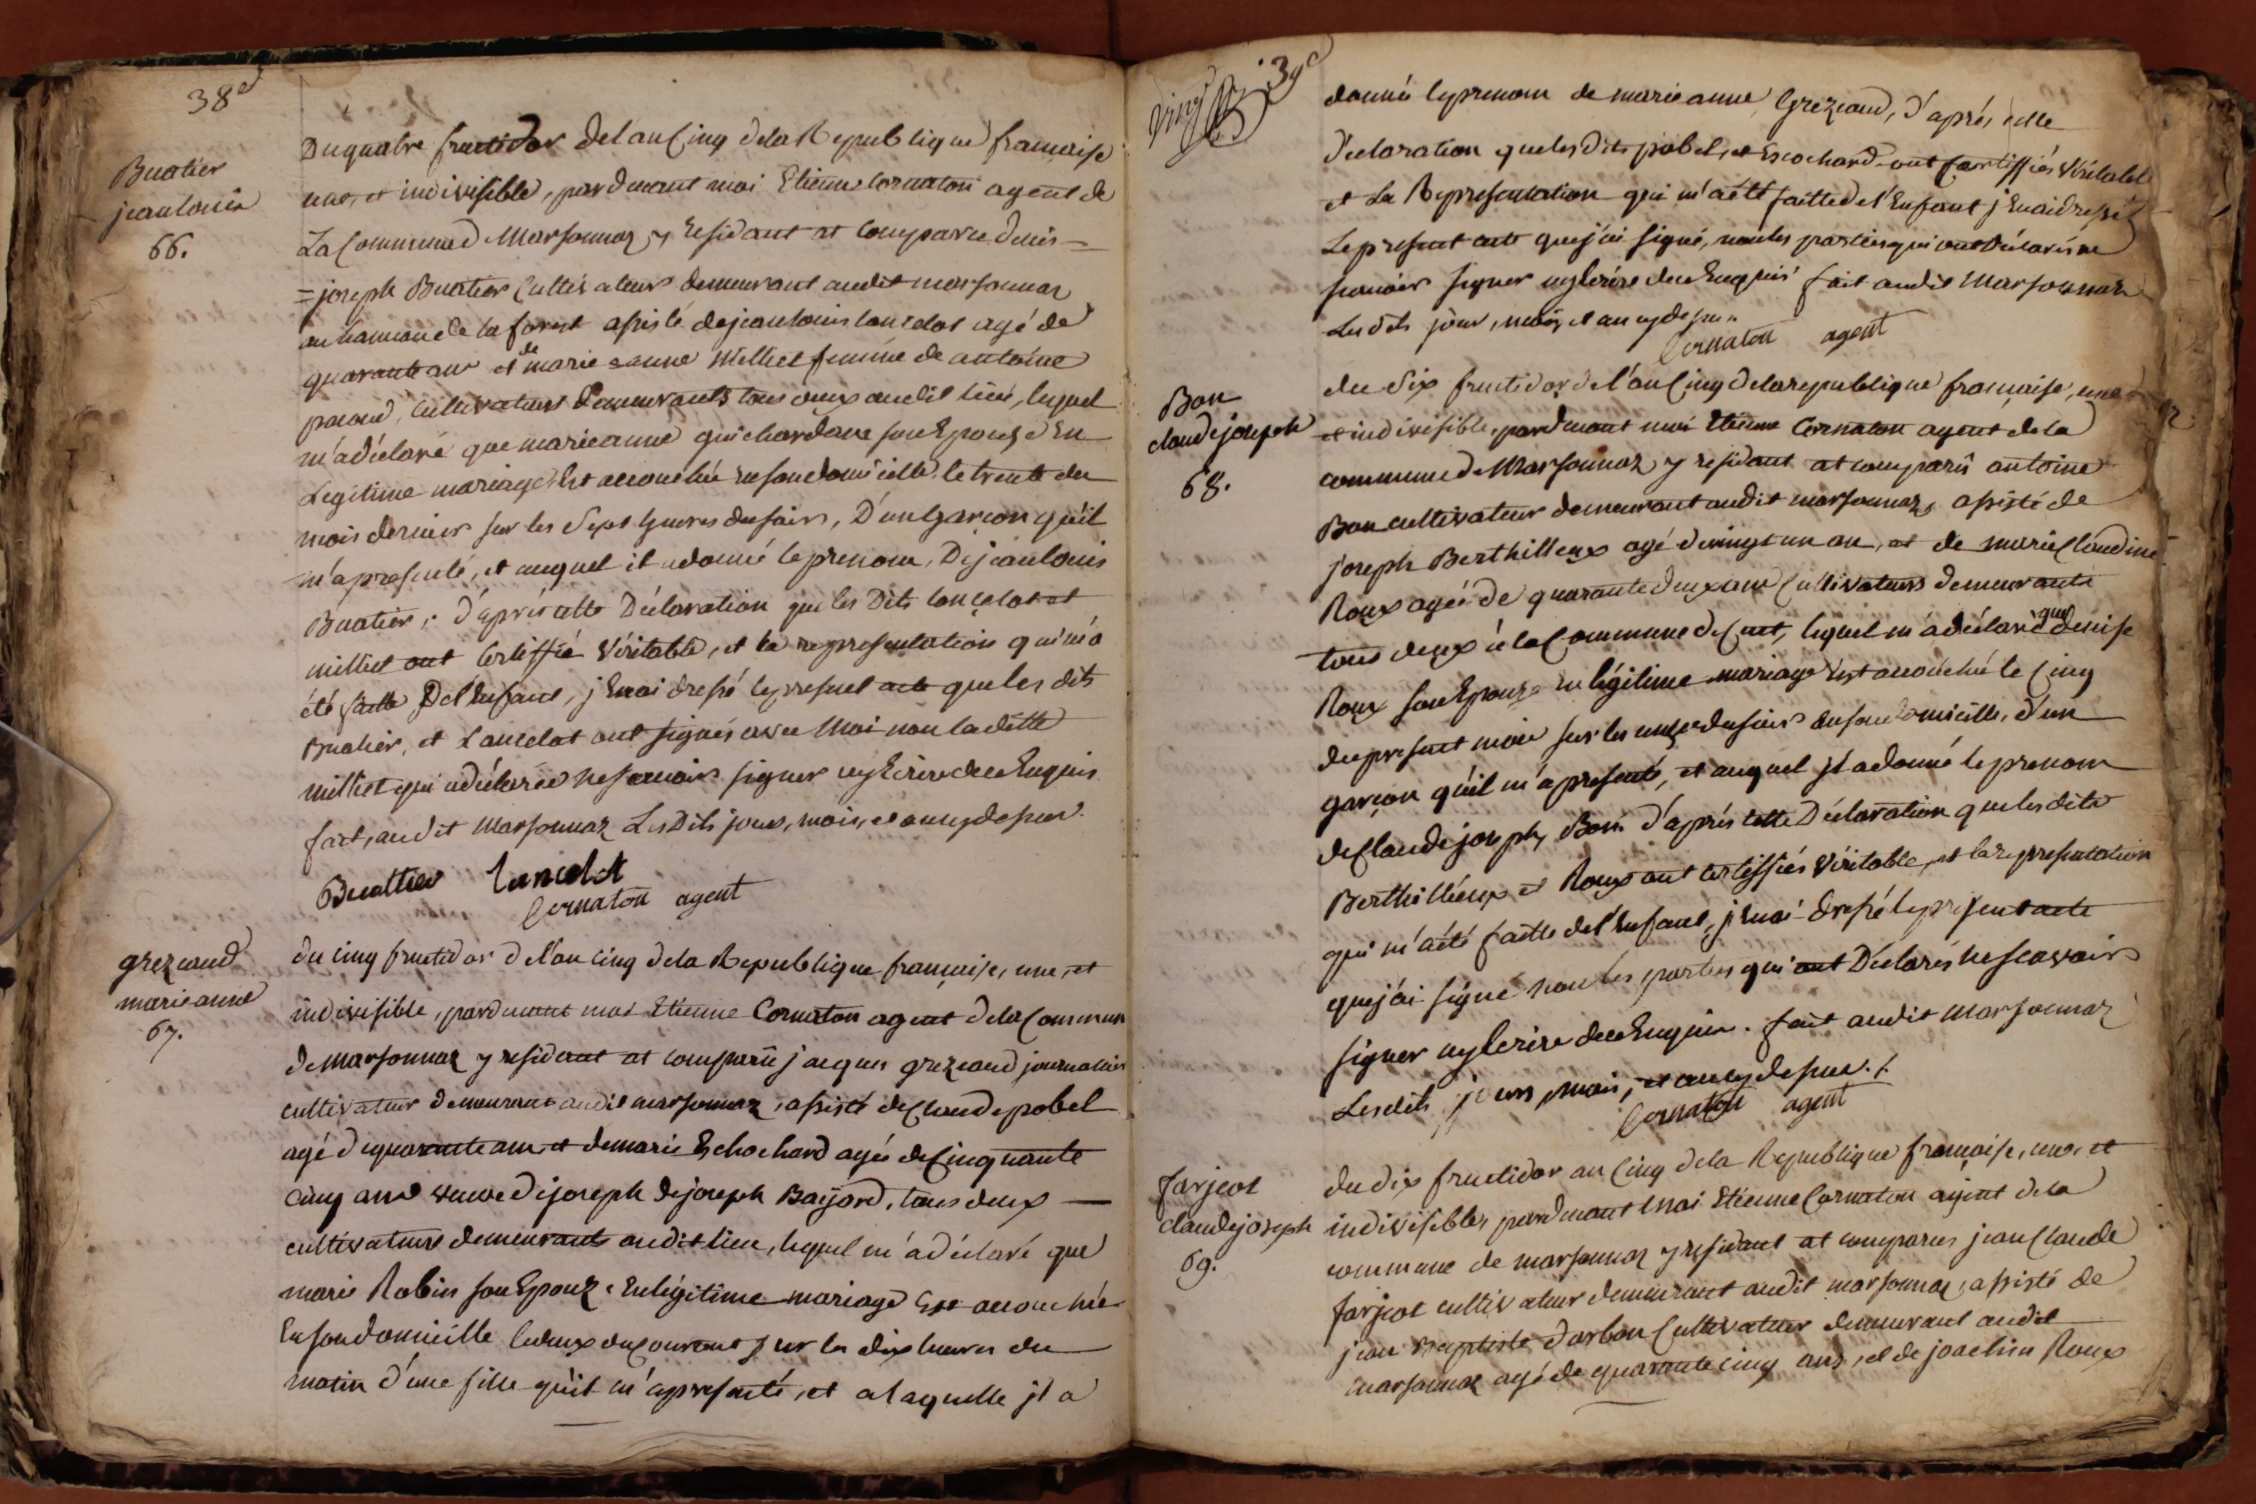 38e
Buatier
jeanlouis
66.
Du quatre fructidor de l'an Cinq de la Republique francaise
une, et indivisible, pardevant moi Etienne Cornaton agent de
La Commune de Marsonnaz y residant at Comparu denis =
= joseph Buatier Cultivateur demeurant audit marsonnaz
au hameau de la forest assisté de jeanlouis lancelot agé de
quarante ans et de marie anne Milliet femme de antoine
pacoud, Cultivateurs demeurants tous deux audit lieu, lequel
m'a déclaré que marieanne guichardane son Epouze En
Legitime mariage Est accouchée en son domicille le trente du
mois dernier sur les Sept heures du soir, D'un Garcon qu'il
m'a presenté, et auquel il a donné le prenom, De jeanlouis
Buatier; d'après cette Déclaration que les Dits lancelot et
milliet ont Certiffié Véritable, et la representation qui m'a
été faitte De l'Enfant, j'Enai dressé le present acte que les dits
Buatier, et Lancelot ont signés avec Moi non la ditte
milliet qui a déclarée ne scavoir signer ny Ecrire dece Enquis
fait, audit Marsonnaz Les Dits jour, mois, et an cydessus.
Buattier lancelot
Cornaton agent
grezaud
marieanne
67.
du cinq fructidor de l'an cinq de la Republique française, une, et
indivisible, pardevant moi Etienne Cornaton agent de la Commun
de Marsonnaz y residant at comparu jacques grezaud journalier
cultivateur demeurant audit marsonnaz, assisté de Claude pobel
agé de quarante ans et de marie Eschochard agée de Cinquante
Cinq ans veuve de joseph de joseph Baijord, tous deux —
cultivateurs demeurants audit lieu, lequel m'a déclaré que
marie Robin son Epouze En légitime mariage Est accouchée
En son domicille le deux du Courant sur les dix heures du
matin d'une fille qu'il m'a presenté, et a laquelle jl a
39e
donné le prenom de marieanne Grezaud, d'après cette
déclaration que les dits pobel, et Escochard ont Certiffiés Véritable
et La Representation qui m'a été faitte de l'Enfant j'Enai dressé
Le present acte que j'ai signé, non les parties qui ont Déclarés ne
scavoir signer ny Ecrire dece Enquis fait audit Marsonnaz
Les dits jour, mois, et an cydessus
Cornaton agent
Bon
claudejoseph
68.
du Six fructidor de l'an Cinq de la republique francaise, une
et indivisible, pardevant moi Etienne Cornaton agent de la
commune de Marsonnaz y residant at comparû antoine
Bon cultivateur demeurant audit marsonnaz, assisté de
joseph Berthilleux agé de vingt un an, et de marie Claudine
Roux agée de quarante deux ans Cultivateurs demeurants
tous deux à la Commune de Cuet, lequel m'a déclaré que denise
Roux son Epouze en légitime mariage Est accouchée le Cinq
du present mois sur les onze du soir en son domicille, d'un
garçon qu'il m'a presenté, et auquel jl a donné le prenom
de Claudejoseph, Bon. d'après cette Déclaration que les dits
Berthilleux et Roux ont Certiffiés Véritable, et la representation
qui m'a été faitte de l'Enfant, j'Enai dressé le present acte
que j'ai signé non les parties qui ont Déclarés ne scavoir
signer ny Ecrire dece Enquis. fait audit Marsonnaz
Les dits jours, mois, et an cydessus./.
Cornaton agent
farjeot
claudejoseph
69.
du dix fructidor an Cinq de la Republique française, une, et
indivisible, pardevant moi Etienne Cornaton agent de la
commune de marsonnaz y residant at comparus jean Claude
farjeot cultivateur demeurant audit marsonnaz, assisté de
jean Baptiste darbon Cultivateur demeurant audit
marsonnaz agé de quarante cinq ans, et de joachim Roux